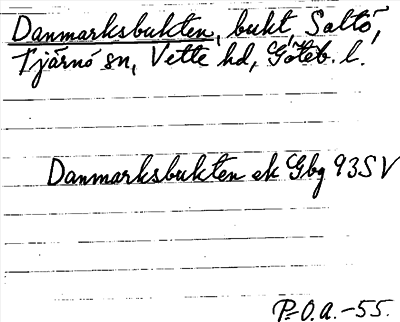 Danmarksbukten, bukt, Saltö,
Tjärnö sn, Vette hd, Göteb. l.
Danmarksbukten ek Gbg 93SV
P.O.A.-55.